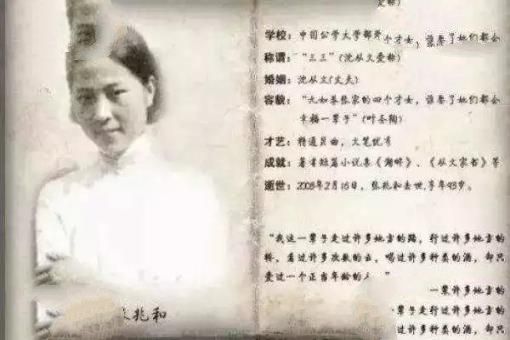 学校：中国公学大学部外
个才女，谁娶了她们都会
称谓：“三三”（沈从文爱称）
婚姻：沈从文（丈夫）
容貌：“九如巷张家的四个才女，谁娶了她们都会
幸福一辈子”（叶圣陶）
才艺：精通昆曲，文笔优秀
成就：著有短篇小说集《湖畔》、《从文家书》等
逝世：2003年2月16日，张兆和去世，享年93岁。
“我这一辈子走过许多地方的路，行过许多地方的
桥，看过许多次数的云，喝过许多种类的酒，却只
爱过一个正当年龄的人”
兆和
许多地方的
辈子走过许多地方的
过许多种类的酒，却只